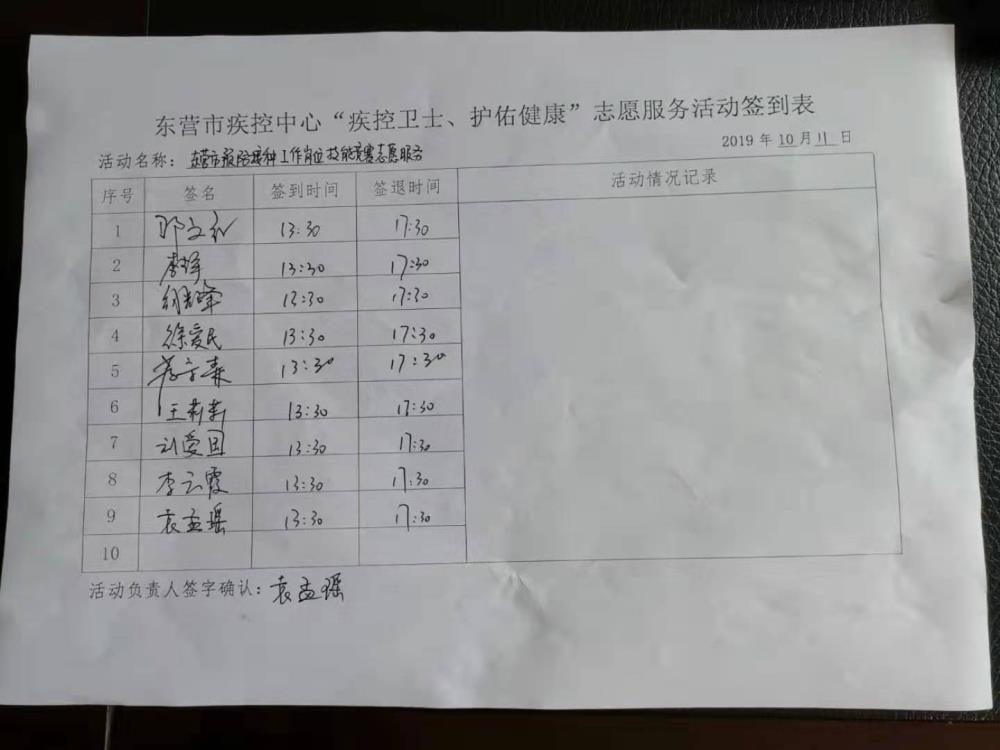 东营市疾控中心“疾控卫士、护佑健康”志愿服务活动签到表
2019 年 10 月 11 日
活动名称：东营市预防接种工作岗位技能竞赛志愿服务
序号 签名 签到时间 签退时间 活动情况记录
1 邓文礼 13:30 17:30
2 13:30 17:30
3 13:30 17:30
4 徐爱民 13:30 17:30
5 13:30 17:30
6 王莉莉 13:30 17:30
7 刘爱国 13:30 17:30
8 李云霞 13:30 17:30
9 袁孟瑶 13:30 17:30
10
活动负责人签字确认：袁孟瑶